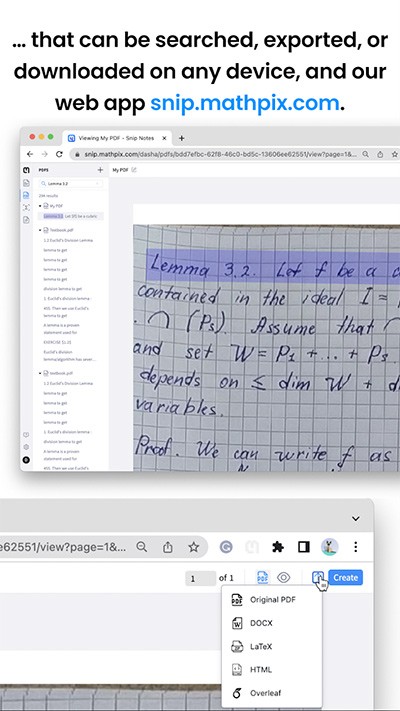 ... that can be searched, exported, or
downloaded on any device, and our
web app snip.mathpix.com.
Viewing My PDF - Snip Notes
snip.mathpix.com/dasha/pdfs/bdd7efbc-62f8-46c0-bd5c-13606ee62551/view?page=1&...
PDFS
My PDF
Lemma 3.2
294 results
My PDF
Lemma 3.2. Let f be a cubic
Textbook.pdf
1.2 Euclid's Division Lemma
lemma to get
lemma to get
lemma to get
lemma to get
division lemma to get
1. Euclid's division lemma :
AOD. Then we use Euclid's
lemma to get
A lemma is a proven
statement used for
EXERCISE 1.1
Euclid's division
lemma/algorithm has sever...
textbook.pdf
1.2 Euclid's Division Lemma
lemma to get
lemma to get
lemma to get
lemma to get
division lemma to get
1. Euclid's division lemma :
division lemma to get
A lemma is a proven
statement used for
AOD. Then we use Euclid's
Lemma 3.2. Let f be a c
contained in the ideal I =
. ∩ (Ps). Assume that
and set W = P1 + ... + Ps.
depends on ≤ dim W + d
variables.
Proof. We can write f as
e62551/view?page=1&...
1 of 1
Create
Original PDF
DOCX
LaTeX
HTML
Overleaf